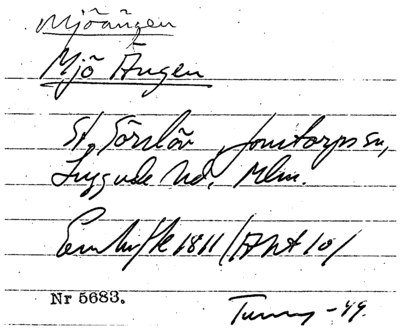 Mjöängen
Mjö Ängen
St. Görslöv, Jonstorps sn,
Luggude hd. Mlm.
Enskifte 1811 (Akt 10)
Nr 5683.
-49.